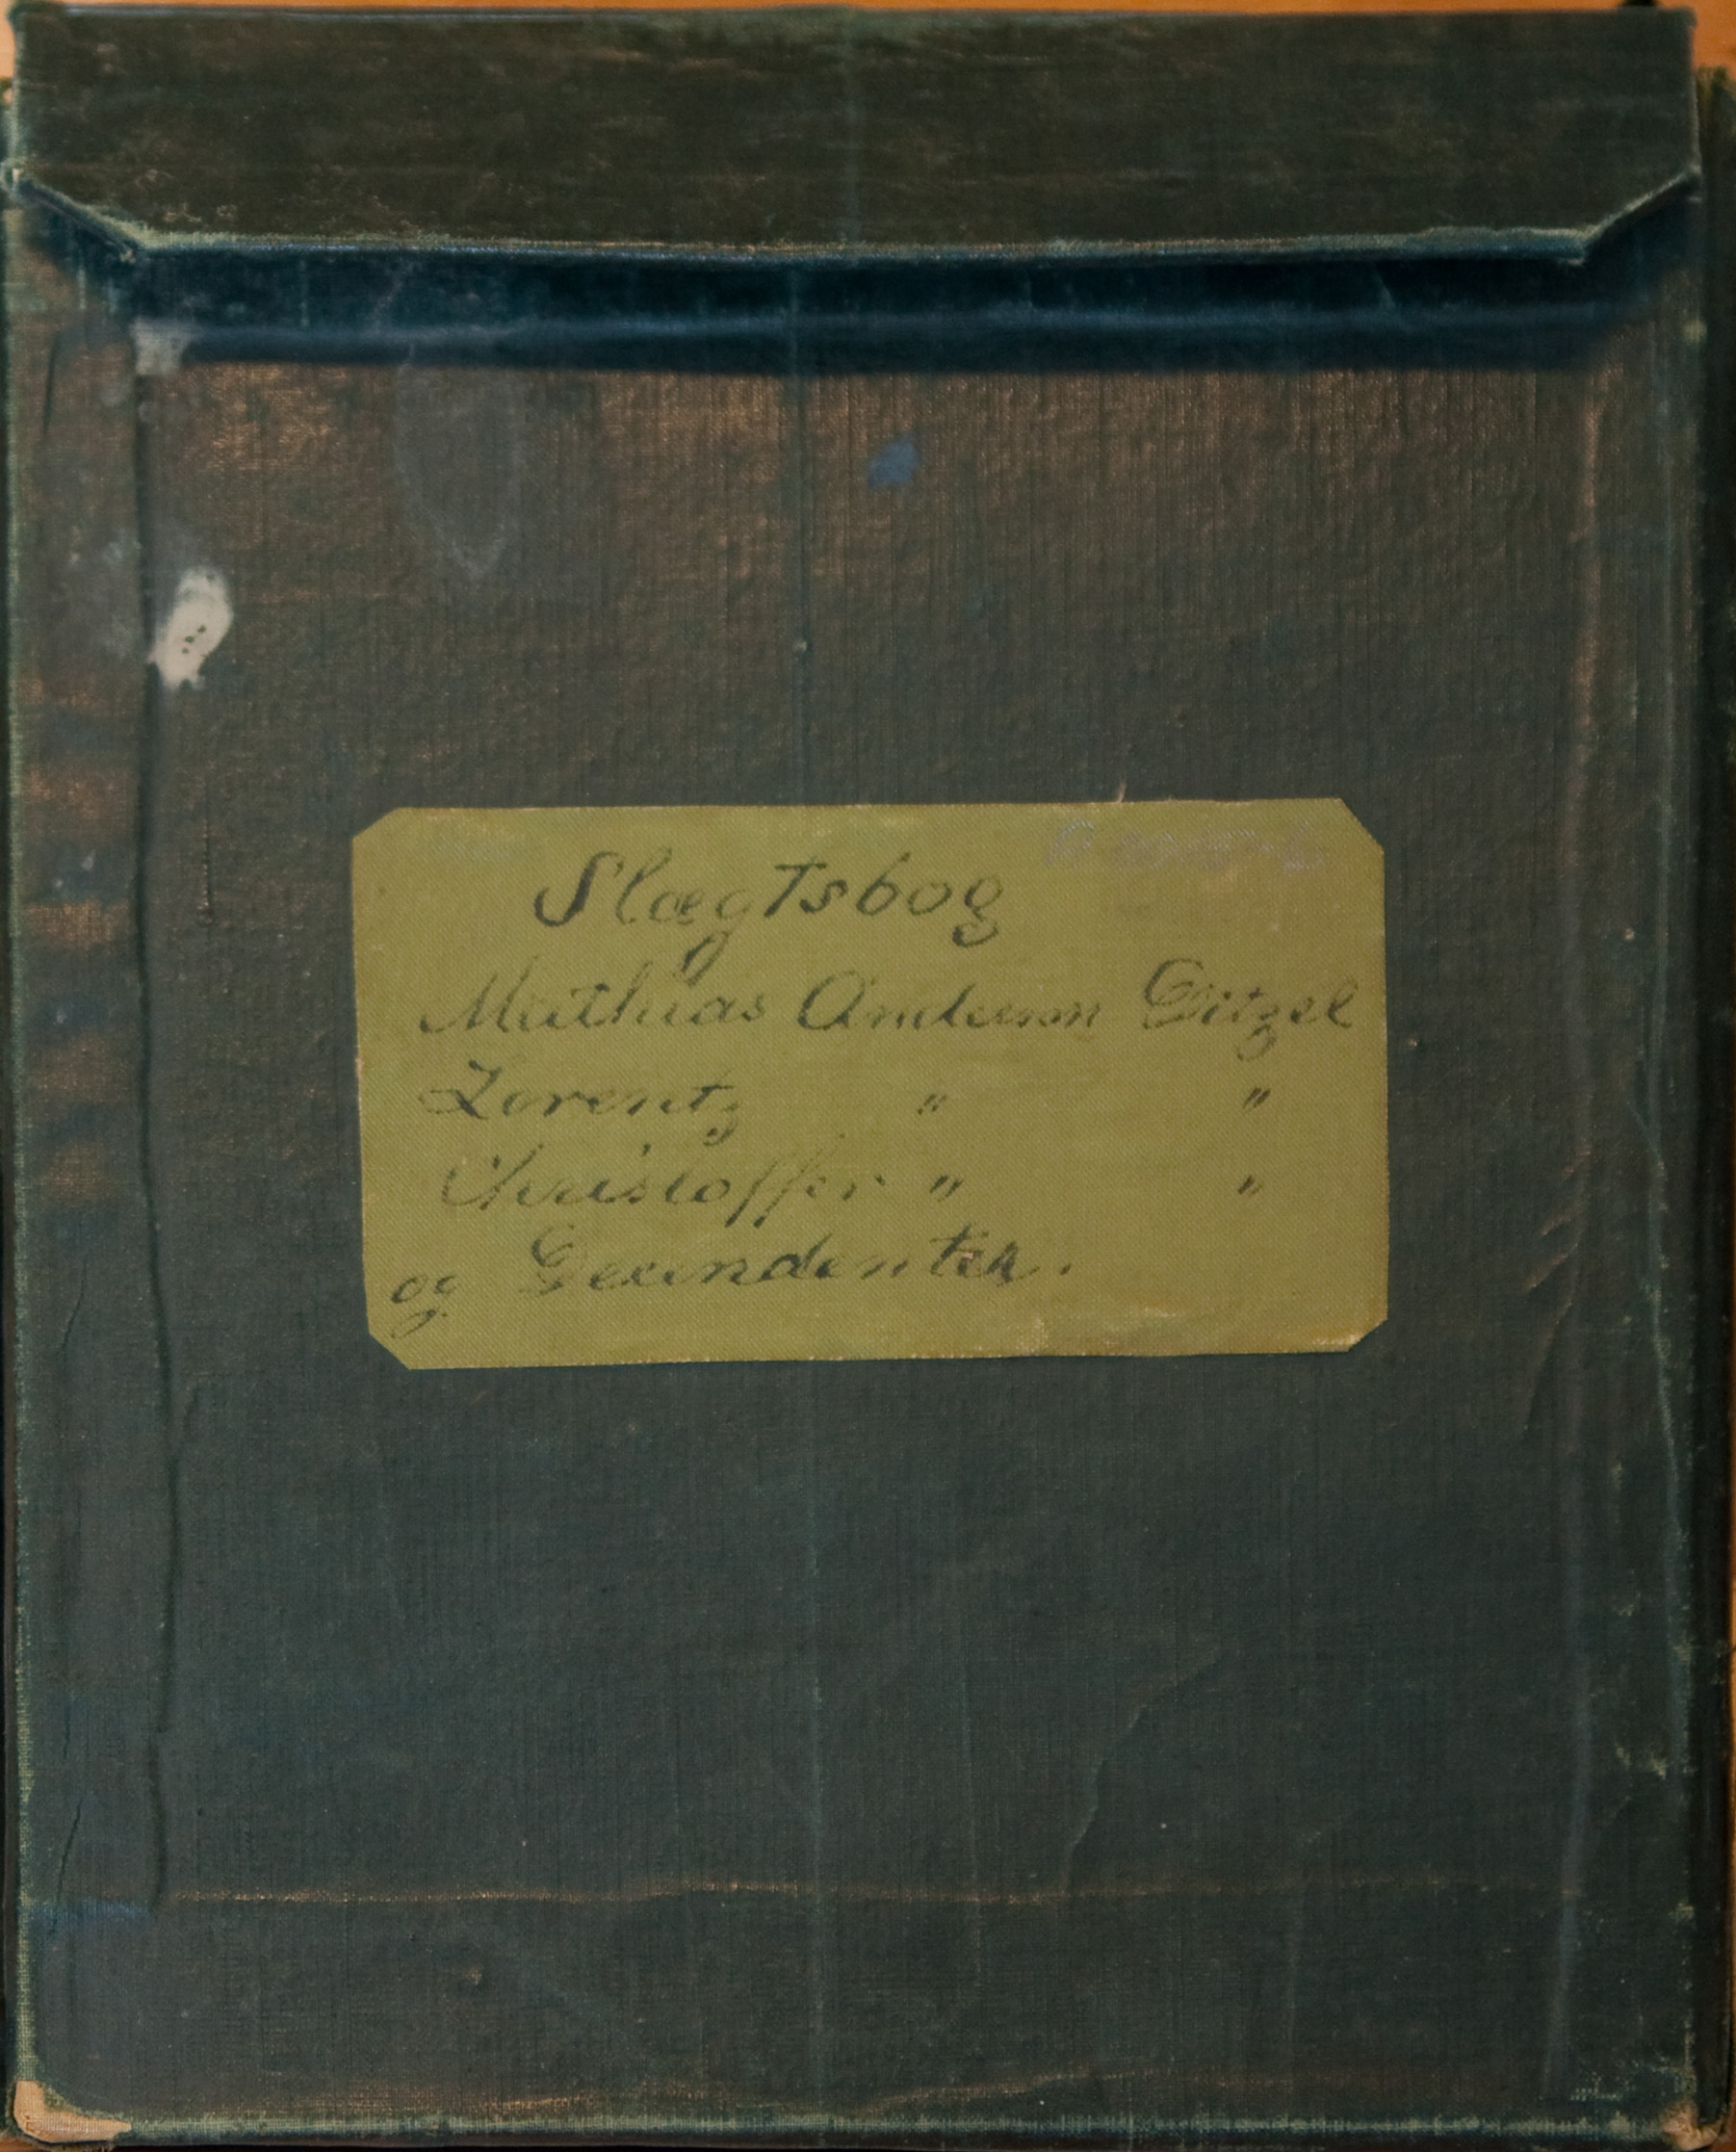 Slægtsbog
Matthias Andersen Ditzel
Lorentz " "
Christoffer " "
og Decendenter.